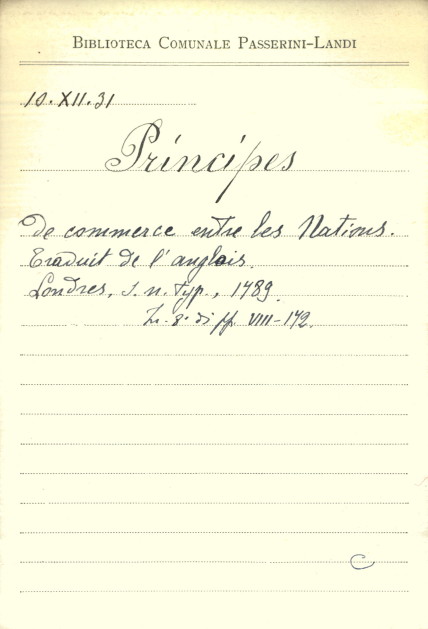 BIBLIOTECA COMUNALE PASSERINI-LANDI
10.XII.31
Principes
de commerce entre les Nations.
Traduit de l'anglais.
Londres, s. n. typ., 1789.
In-8° di pp. VIII-172.
C